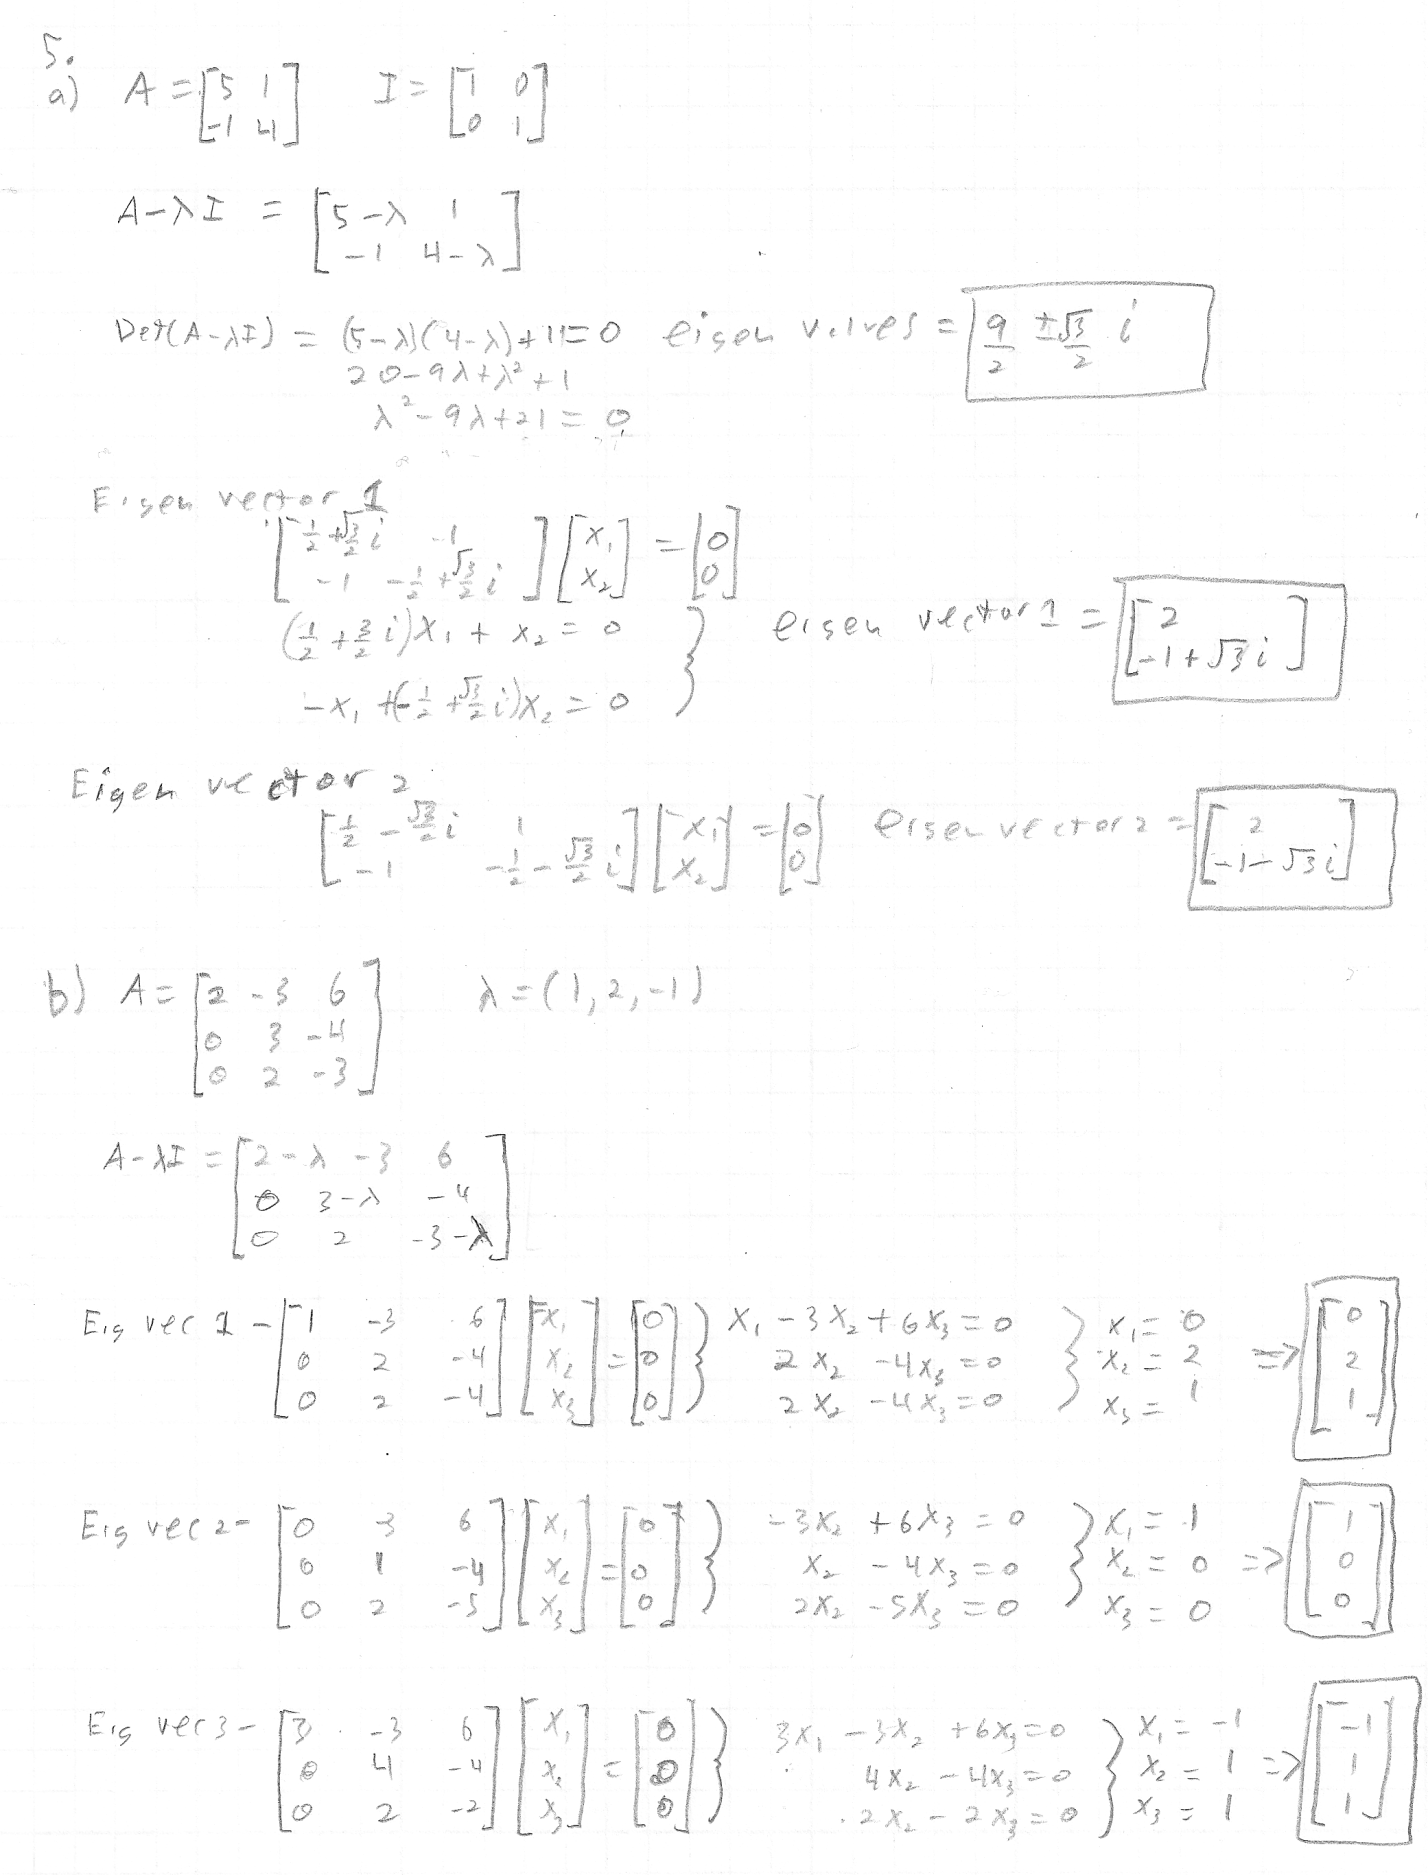 5.
a) A = [5 1; -1 4] I = [1 0; 0 1]
A-λI = [5-λ 1; -1 4-λ]
Det(A-λI) = (5-λ)(4-λ)+1=0 eigen values = 9/2 ± √3/2 i
20-9λ+λ²+1
λ²-9λ+21=0
Eigen vector 1
[1/2+√3/2 i -1; -1 -1/2+√3/2 i][x₁; x₂] = [0; 0]
(1/2+3/2 i)x₁ + x₂ = 0
eigen vector 1 = [2; -1+√3i]
-x₁ +(-1/2+√3/2 i)x₂ = 0
Eigen vector 2
[1/2-√3/2 i 1; -1 -1/2-√3/2 i][x₁; x₂] = [0; 0] eigen vector 2 = [2; -1-√3i]
b) A = [2 -3 6; 0 3 -4; 0 2 -3] λ=(1,2,-1)
A-λI = [2-λ -3 6; 0 3-λ -4; 0 2 -3-λ]
Eig vec 1 - [1 -3 6; 0 2 -4; 0 2 -4][x₁; x₂; x₃] = [0; 0; 0] } x₁-3x₂+6x₃=0 } x₁=0 => [0; 2; 1]
2x₂-4x₃=0 x₂=2
2x₂-4x₃=0 x₃=1
Eig vec 2- [0 -3 6; 0 1 -4; 0 2 -5][x₁; x₂; x₃] = [0; 0; 0] } -3x₂+6x₃=0 } x₁=1 => [1; 0; 0]
x₂-4x₃=0 x₂=0
2x₂-5x₃=0 x₃=0
Eig vec 3- [3 -3 6; 0 4 -4; 0 2 -2][x₁; x₂; x₃] = [0; 0; 0] } 3x₁-3x₂+6x₃=0 } x₁=-1 => [-1; 1; 1]
4x₂-4x₃=0 x₂=1
2x₂-2x₃=0 x₃=1